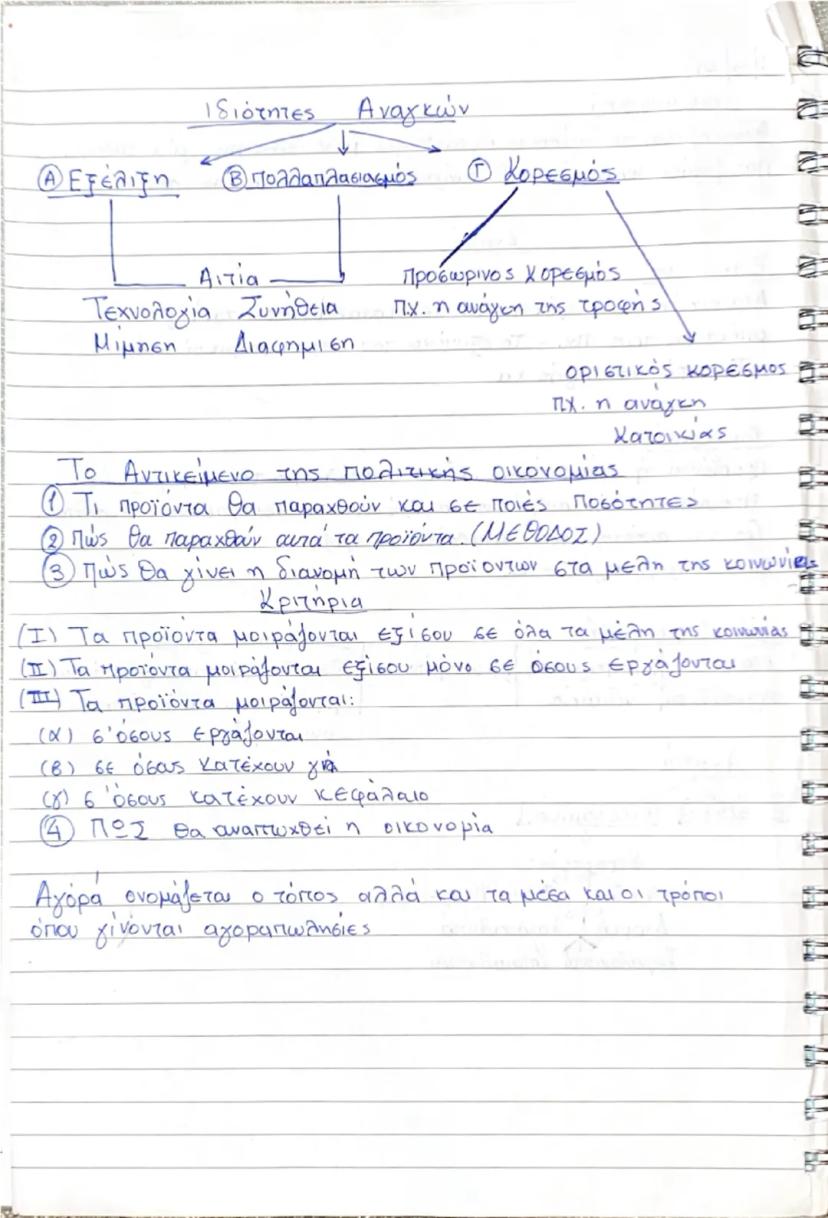 Ιδιότητες Αναγκών
Α Εξέλιξη Β Πολλαπλασιασμός Γ Κορεσμός
Αιτία Προσωρινος Κορεσμός
Τεχνολογία Συνήθεια Π.χ. η ανάγκη της τροφής
Μίμηση Διαφημιση
οριστικός κορέσμος
πχ. η ανάγκη
Κατοικιάς
Το Αντικείμενο της πολιτικής οικονομίας
1 Τι προϊόντα θα παραχθούν και σε ποιές ποσότητες
2 Πώς θα παραχθούν αυτά τα προϊόντα. (ΜΕΘΟΔΟΣ)
3 Πώς θα γίνει η διανομή των προϊοντων στα μέλη της κοινωνίας
Κριτήρια
(I) Τα προϊόντα μοιράζονται εξίσου σε όλα τα μέλη της κοινωνίας
(II) Τα προϊόντα μοιράζονται εξίσου μόνο σε όσους εργάζονται
(III) Τα προϊόντα μοιράζονται:
(α) σ'όσους εργάζονται
(β) σε όσους κατέχουν γη
(γ) σ'όσους κατέχουν κεφάλαιο
4 ΠΩΣ θα αναπτωχθεί η οικονομία
Αγόρά ονομάζεται ο τόπος αλλά και τα μέσα και οι τρόποι
όπου γίνονται αγοραπωλησίες